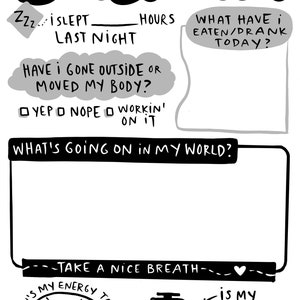 ZZZ... i SLEPT ______ HOURS
LAST NIGHT
WHAT HAVE i
EATEN/DRANK
TODAY?
HAVE i GONE OUTSIDE OR
MOVED MY BODY?
YEP NOPE WORKIN'
ON iT
WHAT'S GOING ON iN MY WORLD?
TAKE A NICE BREATH
MY ENERGY
iS MY